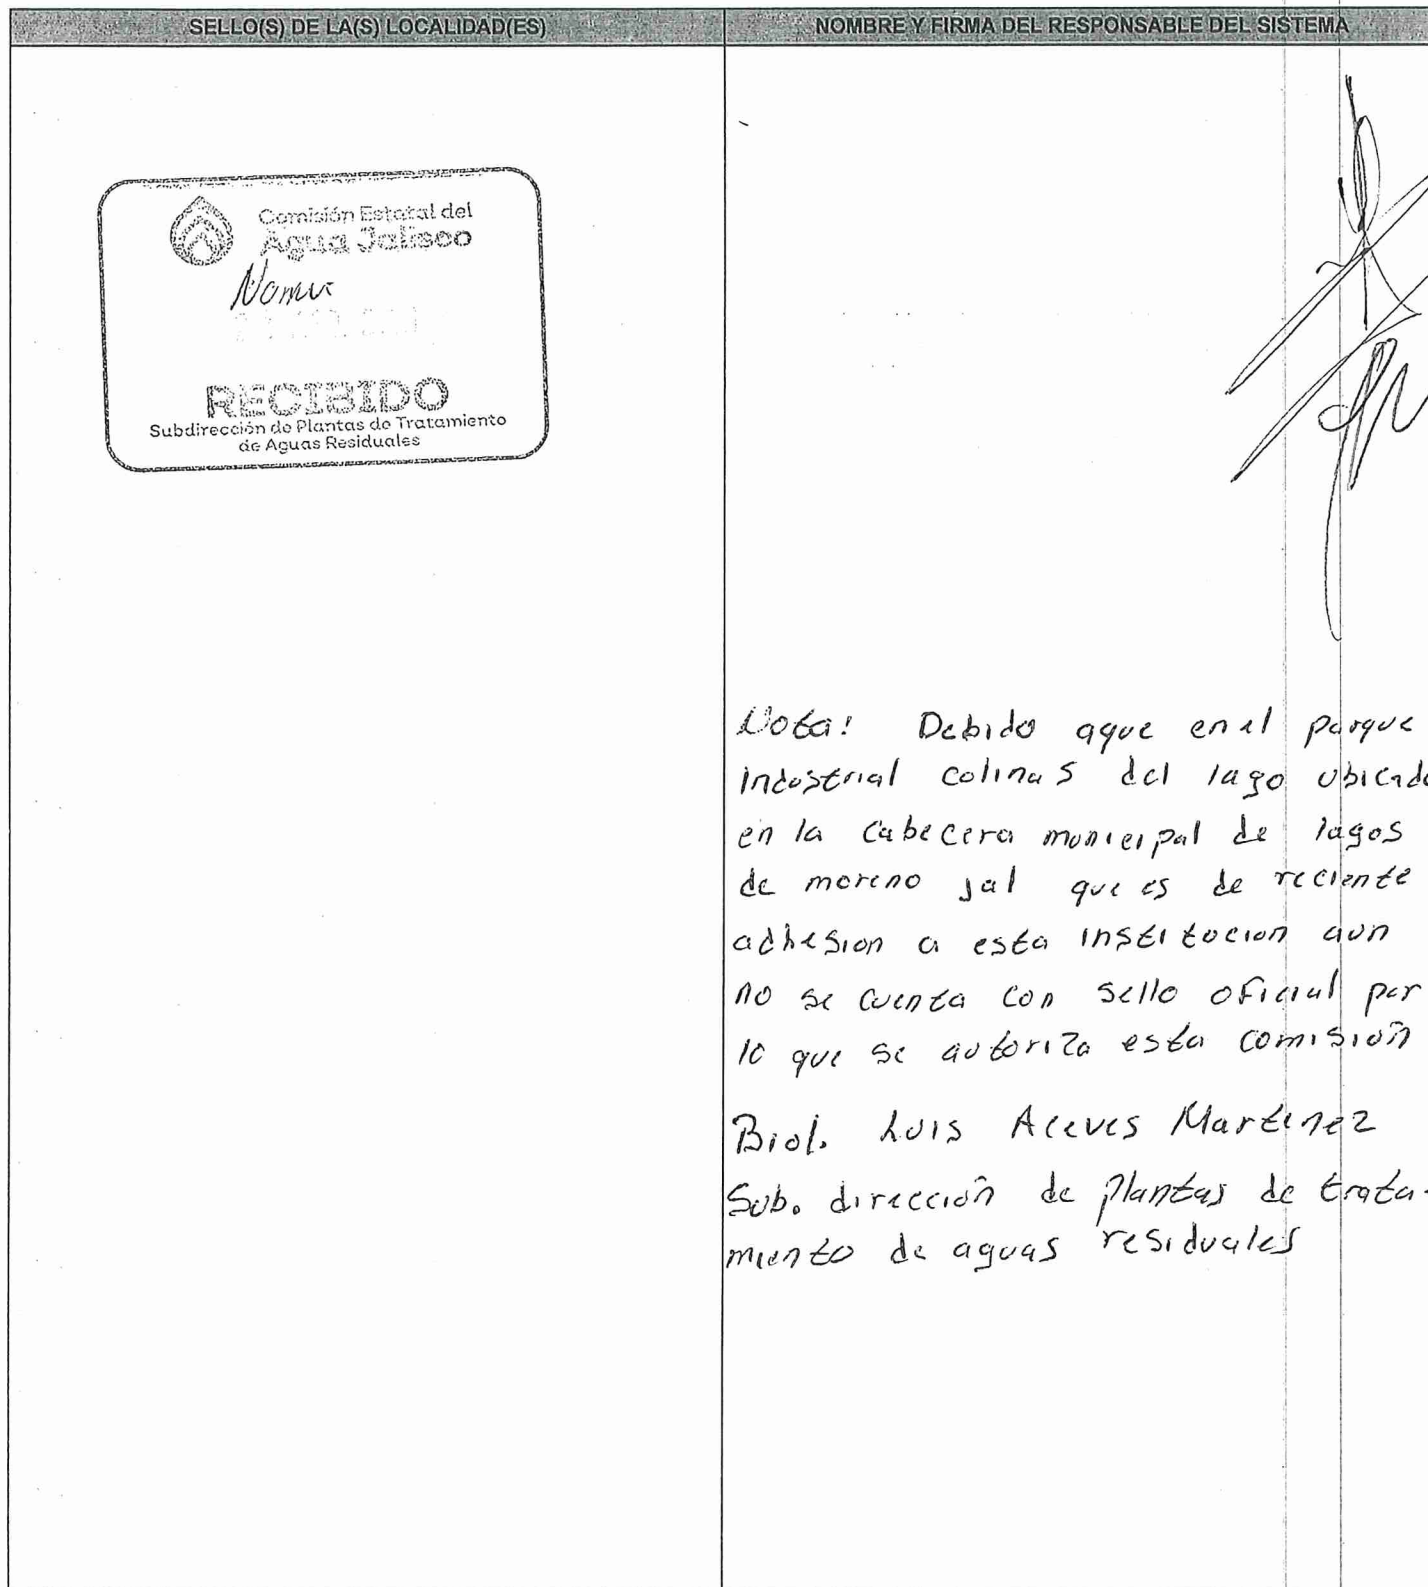 SELLO(S) DE LA(S) LOCALIDAD(ES)
NOMBRE Y FIRMA DEL RESPONSABLE DEL SISTEMA
Comisión Estatal del
Agua Jalisco
RECIBIDO
Subdirección de Plantas de Tratamiento
de Aguas Residuales
Nota: Debido aque en el parque
industrial colinas del lago ubicado
en la cabecera municipal de lagos
de moreno jal que es de reciente
adhesion a esta institucion aun
no se cuenta con sello oficial por
lo que se autoriza esta comisión
Biol. Luis Aceves Martinez
Sub. dirección de plantas de trata-
miento de aguas residuales